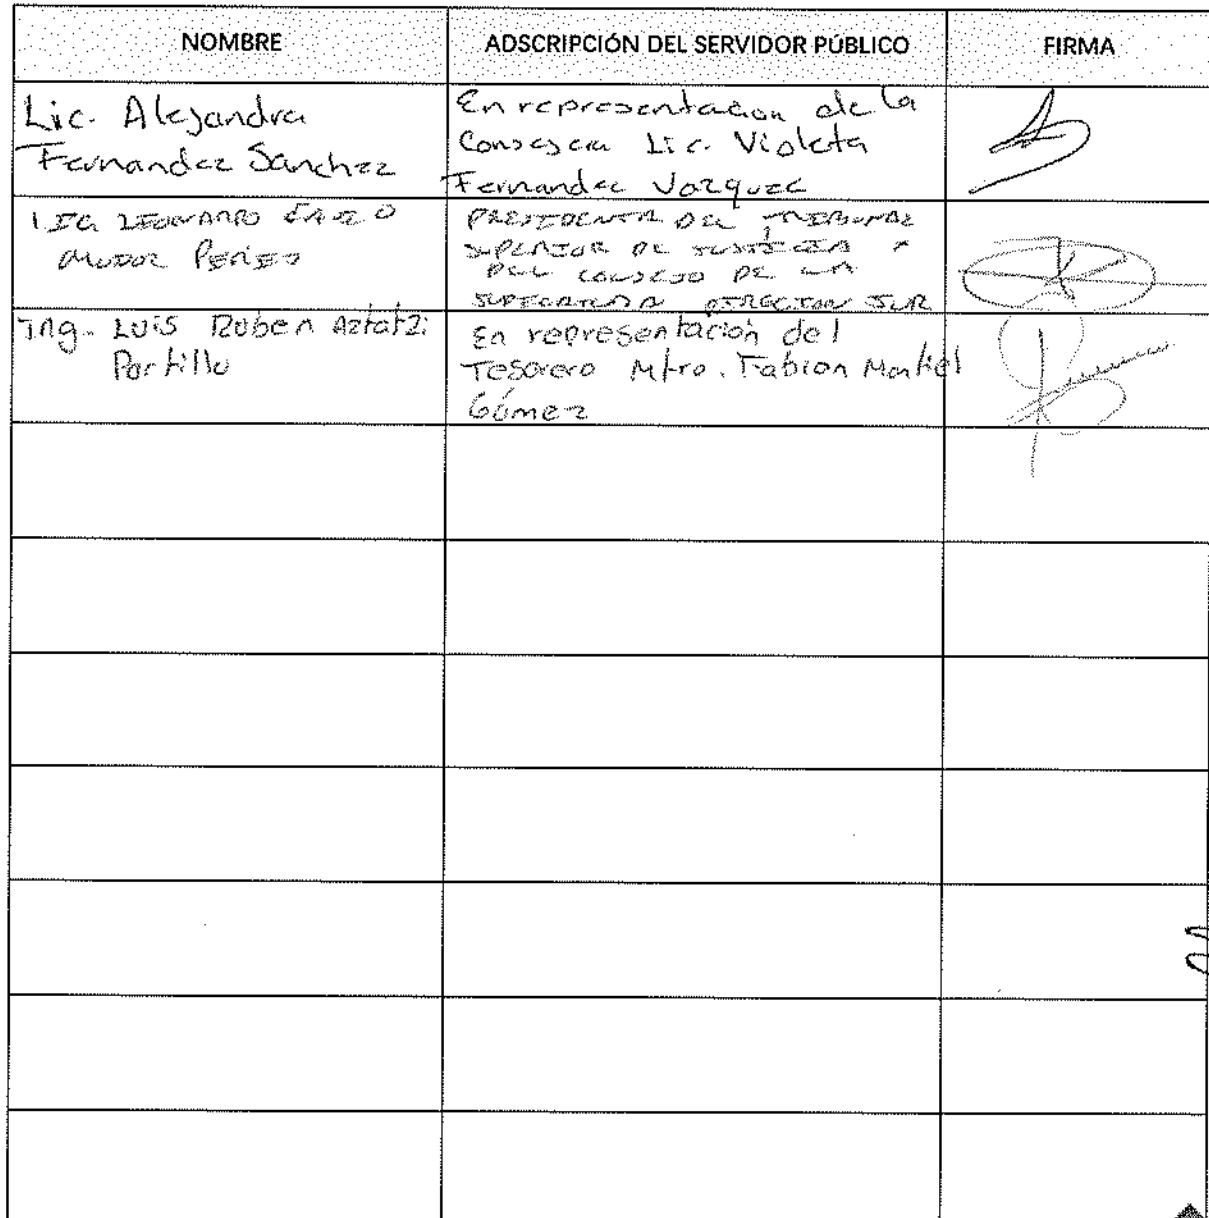 NOMBRE ADSCRIPCIÓN DEL SERVIDOR PÚBLICO FIRMA
Lic. Alejandra
Fernandez Sanchez
En representacion de la
Consejera Lic. Violeta
Fernandez Vazquez
LIC. LEONARDO
PRESIDENCIA DEL TRIBUNAL
SUPERIOR DE JUSTICIA Y
DEL CONSEJO DE LA
Ing. Luis Ruben Aztatzi
Portillo
En representación del
Tesorero Mtro. Fabian Montiel
Gómez